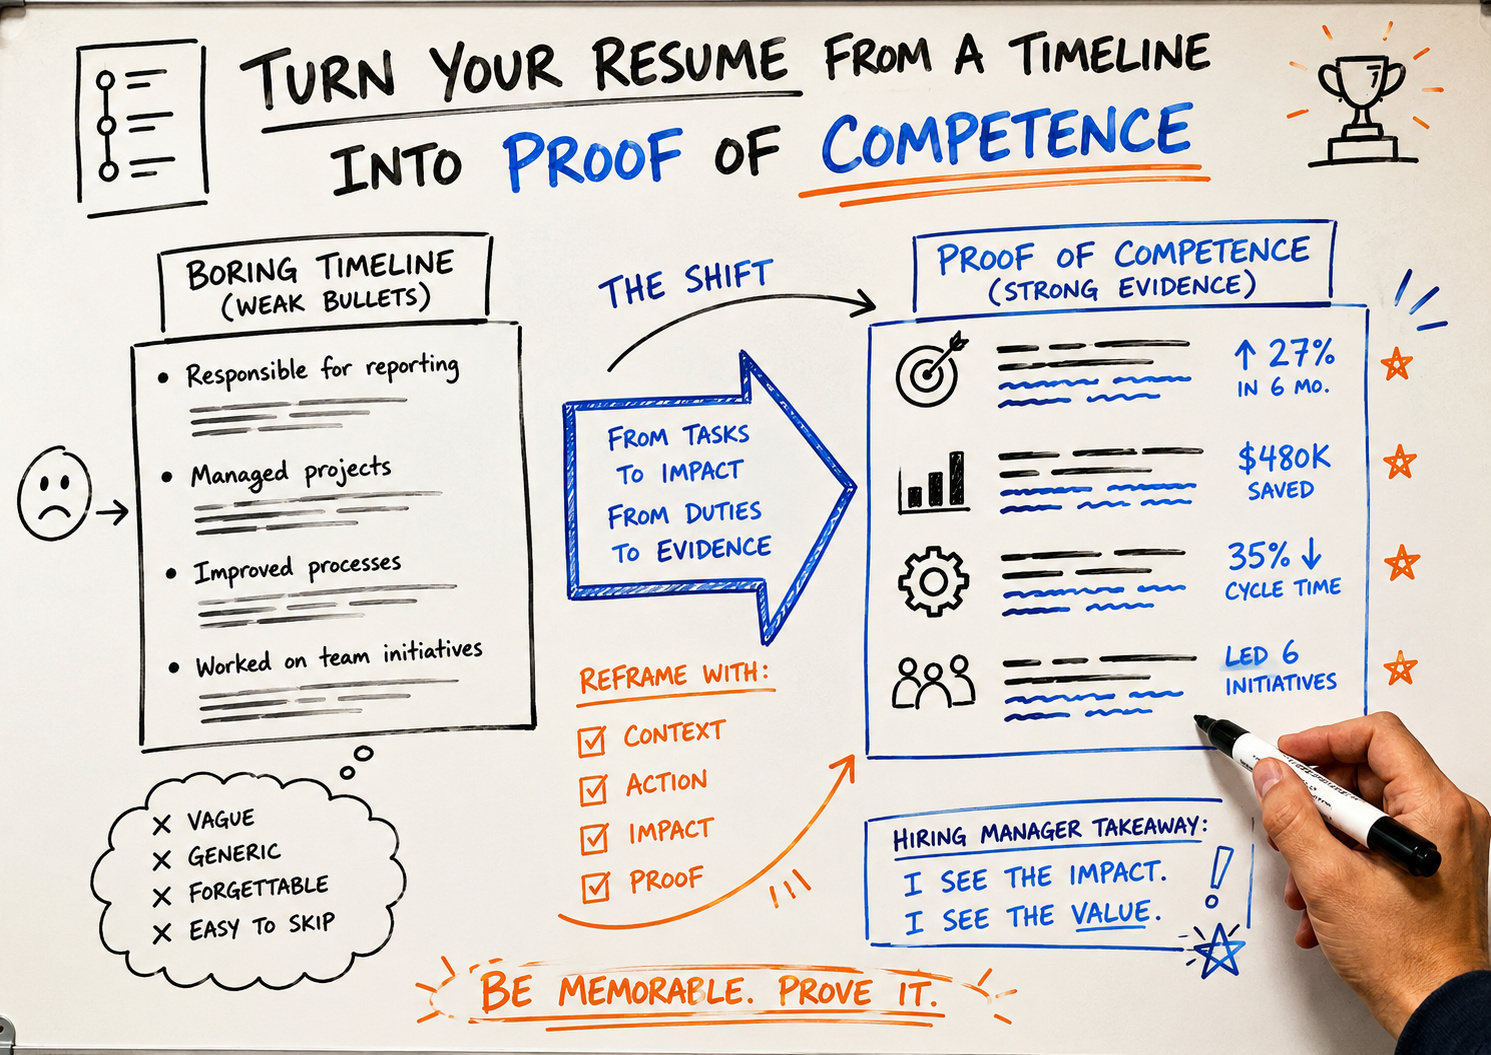 TURN YOUR RESUME FROM A TIMELINE
INTO PROOF OF COMPETENCE
BORING TIMELINE
(WEAK BULLETS)
• Responsible for reporting
• Managed projects
• Improved processes
• Worked on team initiatives
X VAGUE
X GENERIC
X FORGETTABLE
X EASY TO SKIP
THE SHIFT
FROM TASKS
TO IMPACT
FROM DUTIES
TO EVIDENCE
REFRAME WITH:
CONTEXT
ACTION
IMPACT
PROOF
PROOF OF COMPETENCE
(STRONG EVIDENCE)
↑ 27%
IN 6 MO.
$480K
SAVED
35% ↓
CYCLE TIME
LED 6
INITIATIVES
HIRING MANAGER TAKEAWAY:
I SEE THE IMPACT.
I SEE THE VALUE.
!
BE MEMORABLE. PROVE IT.